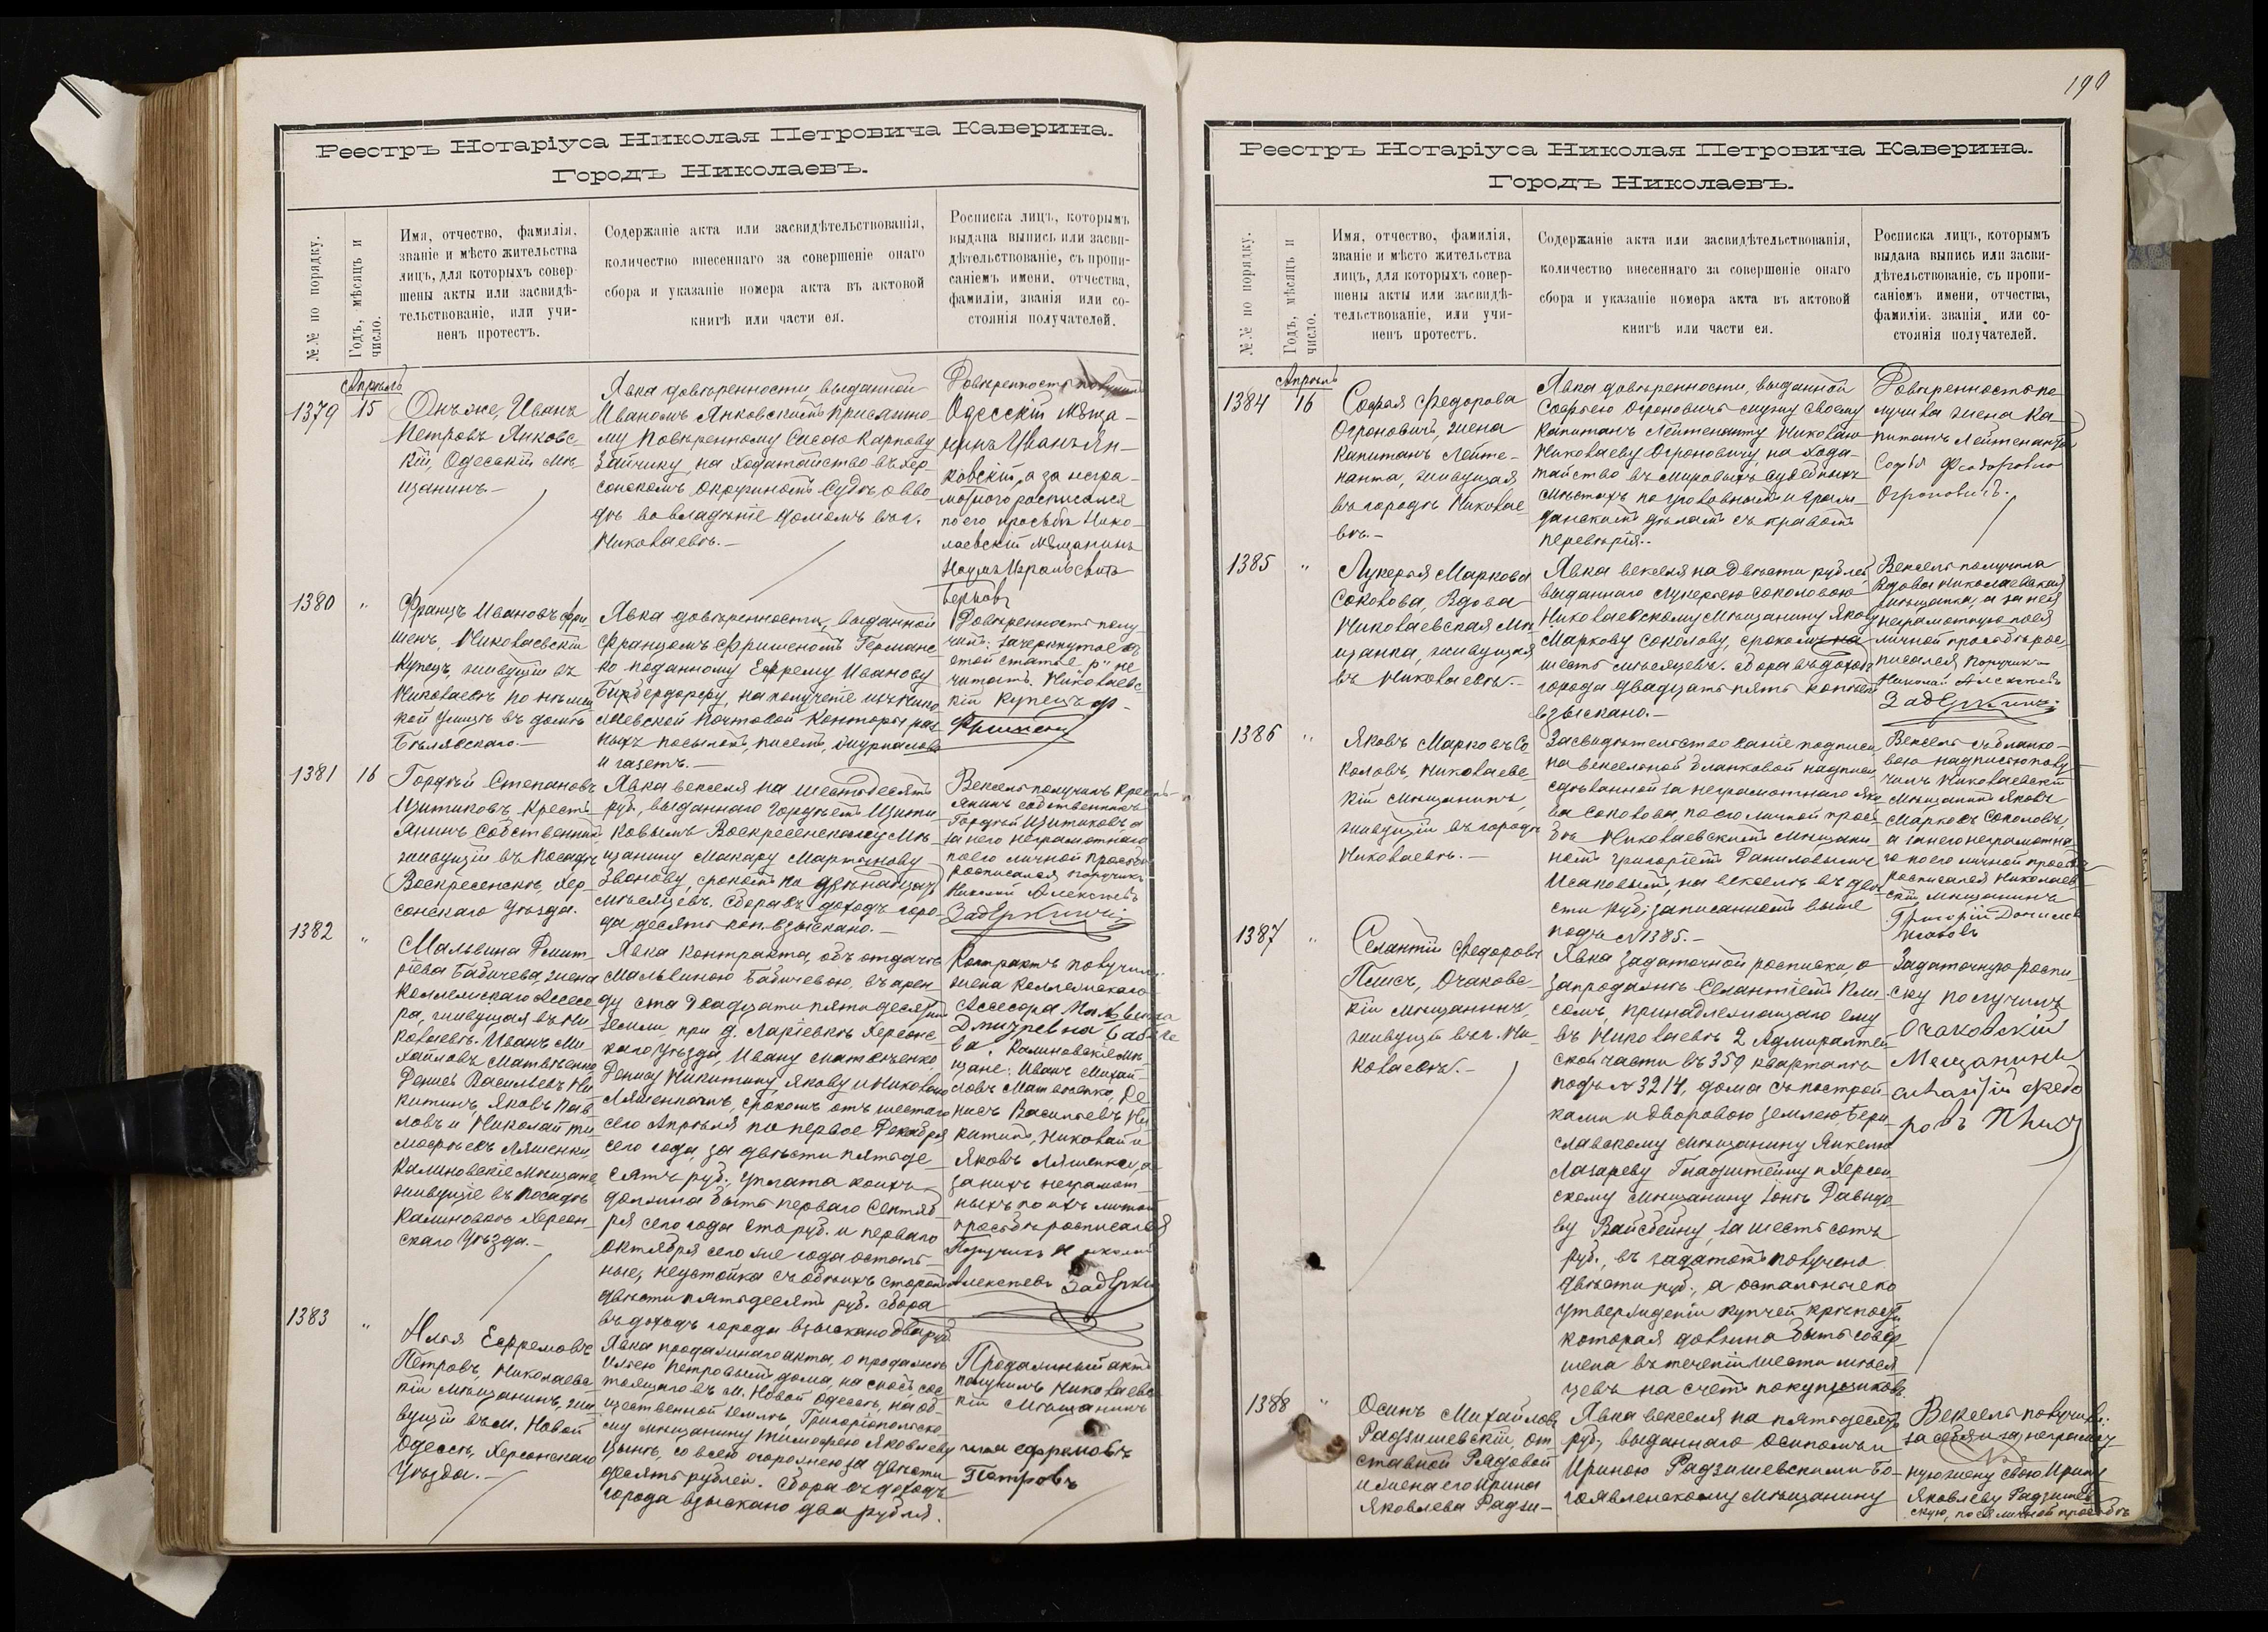 Реестръ Нотаріуса Николая Петровича Каверина.
Городъ Николаевъ.
№.№ по порядку.
Годъ, мѣсяцъ и
число.
Имя, отчество, фамилія,
званіе и мѣсто жительства
лицъ, для которыхъ совер-
шены акты или засвидѣ-
тельствованіе, или учи-
ненъ протестъ.
Содержаніе акта или засвидѣтельствованія,
количество внесеннаго за совершеніе онаго
сбора и указаніе номера акта въ актовой
книгѣ или части ея.
Росписка лицъ, которымъ
выдана выпись или засви-
дѣтельствованіе, съ пропи-
саніемъ имени, отчества,
фамиліи, званія или со-
стоянія получателей.
Апрѣль
1379
15
Онъ же, Иванъ
Петровъ Янковс-
кій, Одесскій мѣ-
щанинъ.—
Явка довѣренности, выданной
Иваномъ Янковскимъ присяжно-
му повѣренному Сысою Карпову
Зайчику, на ходатайство въ Хер-
сонскомъ Окружномъ Судѣ, о вво-
дѣ во владѣніе домомъ въ г.
Николаевѣ.—
Довѣренность получилъ
Одесскій мѣща-
нинъ Иванъ Ян-
ковскій, а за негра-
мотного росписался
по его просьбѣ Нико-
лаевскій мѣщанинъ
1380
"
Францъ Ивановъ Фри-
шенъ, Николаевскій
купецъ, живущій въ
Николаевѣ по Нѣмец-
кой улицѣ въ домѣ
Бѣлявскаго.—
Явка довѣренности, выданной
Францомъ Фришеномъ Германс-
ко подданному Ефрему Иванову
Бирбердорфу, на полученіе изъ Нико-
лаевской почтовой Конторы раз-
ныхъ посылокъ, писемъ, журналовъ
и газетъ.—
Довѣренность полу-
чилъ: зачеркнутое въ
этой статьѣ „р" не
читать. Николаевс-
кій купецъ Ф-
Фришенъ
1381
16
Гордѣй Степановъ
Щитиковъ, кресть-
янинъ собственникъ
живущій въ посадѣ
Воскресенскѣ, Хер-
сонскаго уѣзда.
Явка векселя на шестьдесятъ
руб., выданнаго Гордѣемъ Щити-
ковымъ Воскресенскому мѣ-
щанину Макару Мартынову
Званову, срокомъ на двѣнадцать
мѣсяцевъ. Сбора въ доходъ горо-
да десять коп. взыскано.—
Вексель получилъ кресть-
янинъ собственникъ
Гордѣй Щитиковъ а
за него неграмотнаго
по его личной просьбѣ
росписался поручикъ
Николай Алексѣевъ
Задеркинъ
1382
"
Мальвина Дмит-
ріева Бабичева, жена
Коллежскаго Асессо-
ра, живущая въ Ни-
колаевѣ. Иванъ Ми-
хайловъ Матвѣенко,
Денисъ Васильевъ Ни-
китинъ, Яковъ Пав-
ловъ и Николай Ти-
мофѣевъ Ляшенки
Калиновскіе мѣщане,
живущіе въ посадѣ
Калиновкѣ Херсон-
скаго уѣзда.—
Явка контракта, объ отдачѣ
Мальвиною Бабичевою, въ арен-
ду ста двадцати пяти десятинъ
земли, при д. Ларіевкѣ Херсонс-
каго уѣзда, Ивану Матвѣенко,
Денису Никитину, Якову и Николаю
Ляшенкамъ, срокомъ отъ шестаго
сего Апрѣля по первое Декабря
сего года, за двѣсти пятьде-
сятъ руб., уплата коихъ
должна быть перваго Сентяб-
ря сего года сто руб. и перваго
Октября сего же года осталь-
ные, неустойка съ обѣихъ сторонъ
двѣсти пятьдесятъ руб. Сбора
въ доходъ города взыскано два руб.
Контрактъ получили:
жена коллежскаго
Асессора Мальвина
Дмитревна Бабиче
ва. Калиновскіе мѣ-
щане: Иванъ Михай-
ловъ Матвѣенко, Де-
нисъ Васильевъ Ни-
китинъ, Николай и
Яковъ Ляшенки, а
за нихъ неграмот-
ныхъ по ихъ личной
просьбѣ росписался
Поручикъ Николай
Алексѣевъ Задеркинъ
1383
"
Илья Ефремовъ
Петровъ, Николаевс-
кій мѣщанинъ, жи-
вущій въ м. Новой
Одессѣ, Херсонскаго
уѣзда.—
Явка продажнаго акта, о продажѣ
Ильею Петровымъ дома, на сносъ сос-
тоящаго въ м. Новой Одессѣ, на об-
щественной землѣ, Григоріопольско-
му мѣщанину Тимофею Яковлеву
десять рублей. Сбора въ доходъ
города взыскано два рубля.
Продажный актъ
получилъ Николаевс-
кій мѣщанинъ
илья ефремовъ
Петровъ
190
Реестръ Нотаріуса Николая Петровича Каверина.
Городъ Николаевъ.
№.№ по порядку.
Годъ, мѣсяцъ и
число.
Имя, отчество, фамилія,
званіе и мѣсто жительства
лицъ, для которыхъ совер-
шены акты или засвидѣ-
тельствованіе, или учи-
ненъ протестъ.
Содержаніе акта или засвидѣтельствованія,
количество внесеннаго за совершеніе онаго
сбора и указаніе номера акта въ актовой
книгѣ или части ея.
Росписка лицъ, которымъ
выдана выпись или засви-
дѣтельствованіе, съ пропи-
саніемъ имени, отчества,
фамиліи, званія или со-
стоянія получателей.
Апрѣль
1384
16
Софія Федорова
Огроновичъ, жена
Капитанъ Лейте-
нанта, живущая
въ городѣ Николае-
вѣ.—
Явка довѣренности, выданной
Софіею Огроновичъ мужу своему
Капитанъ Лейтенанту Николаю
Николаеву Огроновичу, на хода-
тайство въ мировыхъ судебныхъ
мѣстахъ по уголовнымъ и граж-
данскимъ дѣламъ съ правомъ
перевѣрія.—
Довѣренность по-
лучила жена Ка-
питанъ Лейтенанта
Софья Федоровна
Огроновичъ.
1385
"
Лукерья Маркова
Соколова, вдова
Николаевская мѣ-
щанка, живущая
въ Николаевѣ.—
Явка векселя на двѣсти рублей,
выданнаго Лукерьею Соколовою
Николаевскому мѣщанину Якову
Маркову Соколову, срокомъ на
шесть мѣсяцевъ. Сбора въ доходъ
города двадцать пять копѣекъ
взыскано.—
Вексель получила
вдова Николаевская
мѣщанка, а за нея
неграмотную по ея
личной просьбѣ рос-
писался Поручикъ
Николай Алексѣевъ
Задеркинъ
1386
"
Яковъ Марковъ Со-
коловъ, Николаевс-
кій мѣщанинъ,
живущій въ городѣ
Николаевѣ.—
Засвидѣтельствованіе подписи
на вексельной бланковой надписи,
сдѣланной за неграмотнаго Яко-
ва Соколова, по его личной прось-
бѣ Николаевскимъ мѣщани-
номъ Григоріемъ Даниловымъ
Исаковымъ, на векселѣ въ двѣ-
сти руб., записанномъ выше
подъ №1385.—
Вексель съ бланко-
вою надписью полу-
чилъ Николаевскій
мѣщанинъ Яковъ
Марковъ Соколовъ,
а за него неграмотна-
го по его личной просьбѣ
росписался Николаев-
скій мѣщанинъ
Григорій Даниловъ
Исаковъ
1387
"
Селантій Федоровъ
Плисъ, Очаковс-
кій мѣщанинъ,
живущій въ г. Ни-
колаевѣ.—
Явка задаточной росписки, о
запродажѣ Селантіемъ Пли-
сомъ, принадлежащаго ему
въ Николаевѣ 2 Адмиралтей-
ской части въ 359 кварталѣ
подъ № 3214, дома съ построй-
ками и дворовою землею, Бери-
славскому мѣщанину Янкелю
Лазареву Гладштейну и Херсон-
скому мѣщанину Іонѣ Давидо-
ву Вайсбейну, за шестьсотъ
руб., въ задатокъ получено
двѣсти руб., а остальные по
утвержденіи купчей крѣпости,
которая должна быть совер-
шена въ теченіи шести мѣся-
цевъ на счетъ покупщиковъ.
Задаточную роспи-
ску получилъ
Очаковскій
Мещанинъ
федо
ровъ Плис
1388
"
Осипъ Михайловъ
Радзишевскій, от-
ставной Рядовой
и жена его Ирина
Яковлева Радзи-
Явка векселя на пятьдесятъ
руб., выданнаго Осипомъ и
Ириною Радзишевскими Бо-
гоявленскому мѣщанину
Вексель получилъ:
за себя и за неграмот
ную жену свою Ирину
Яковлеву Радзишев
скую, по ея личной просьбѣ